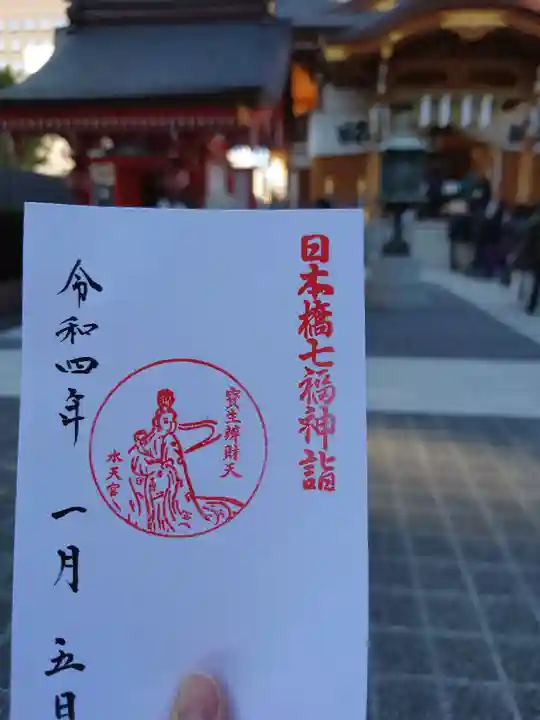 日本橋七福神詣
寳生辨財天
水天宮
令和四年 一月 五日